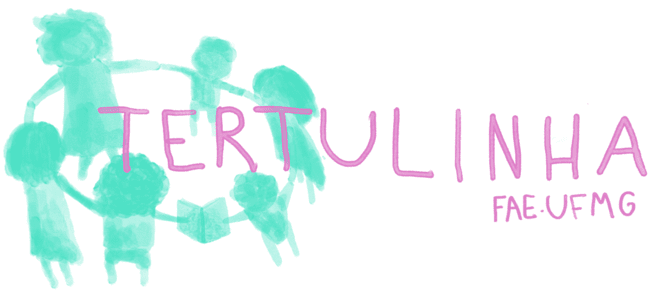 TERTULINHA
FAE.UFMG